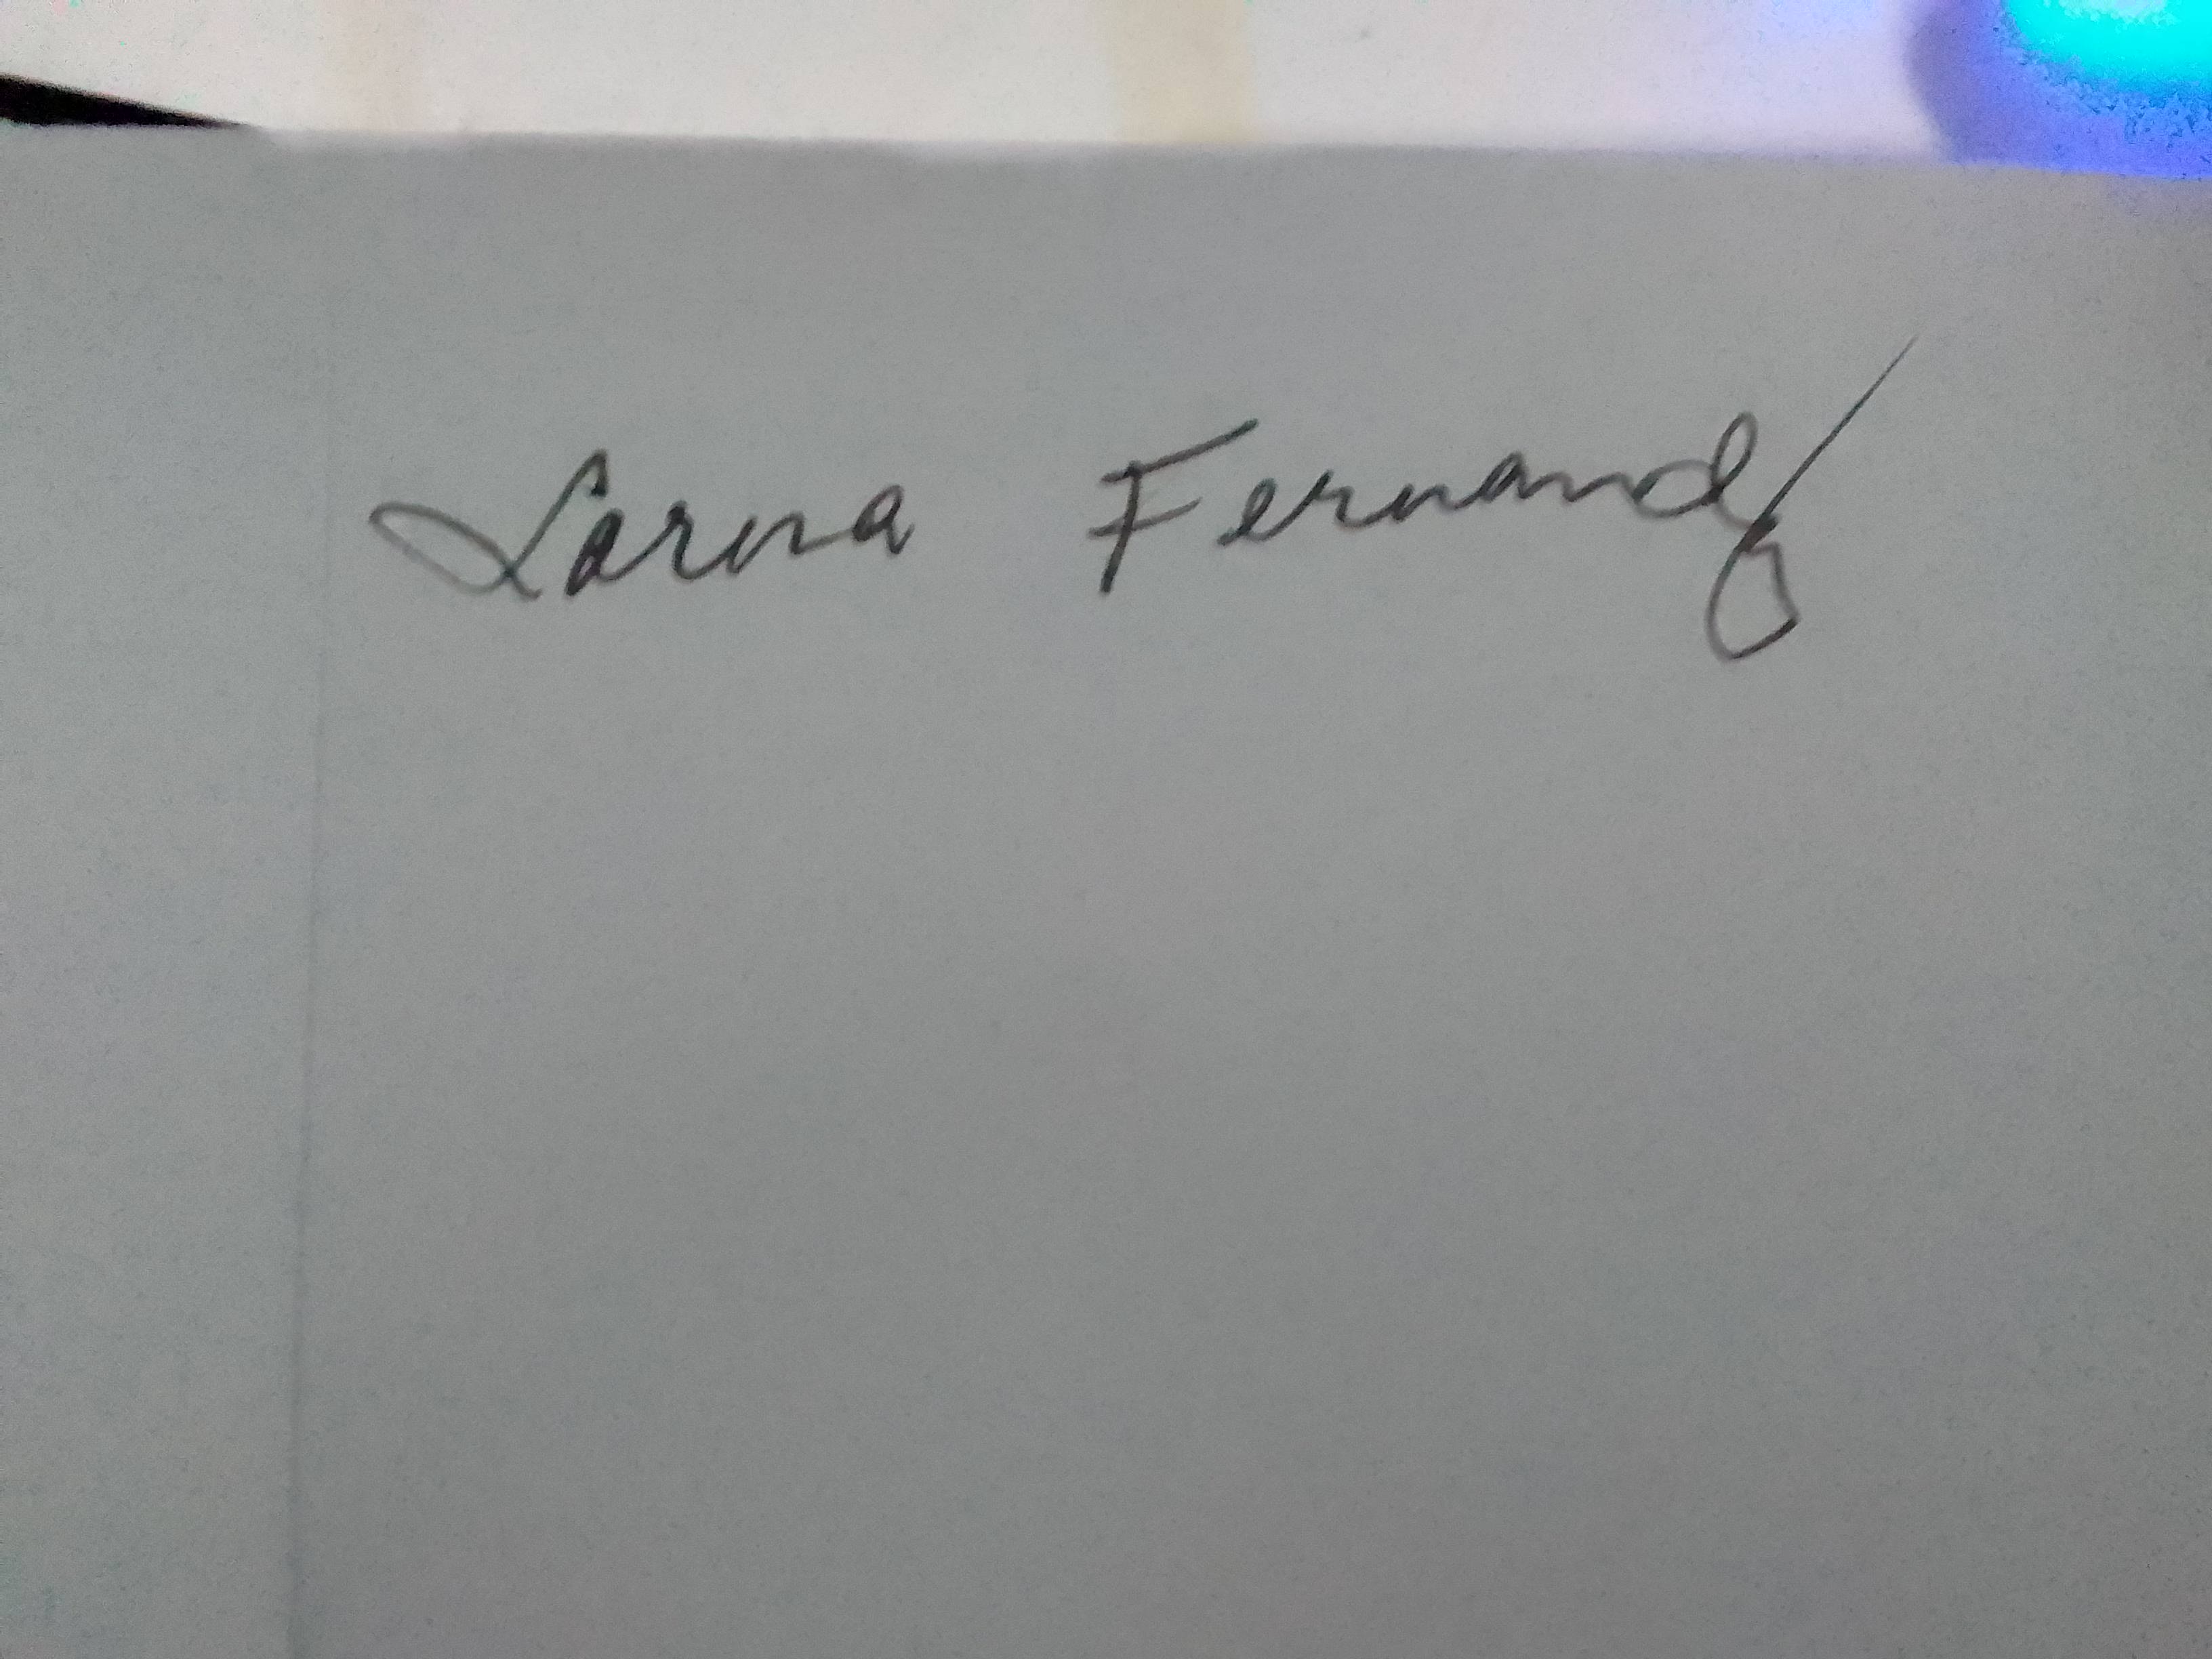 Lorna Fernandz